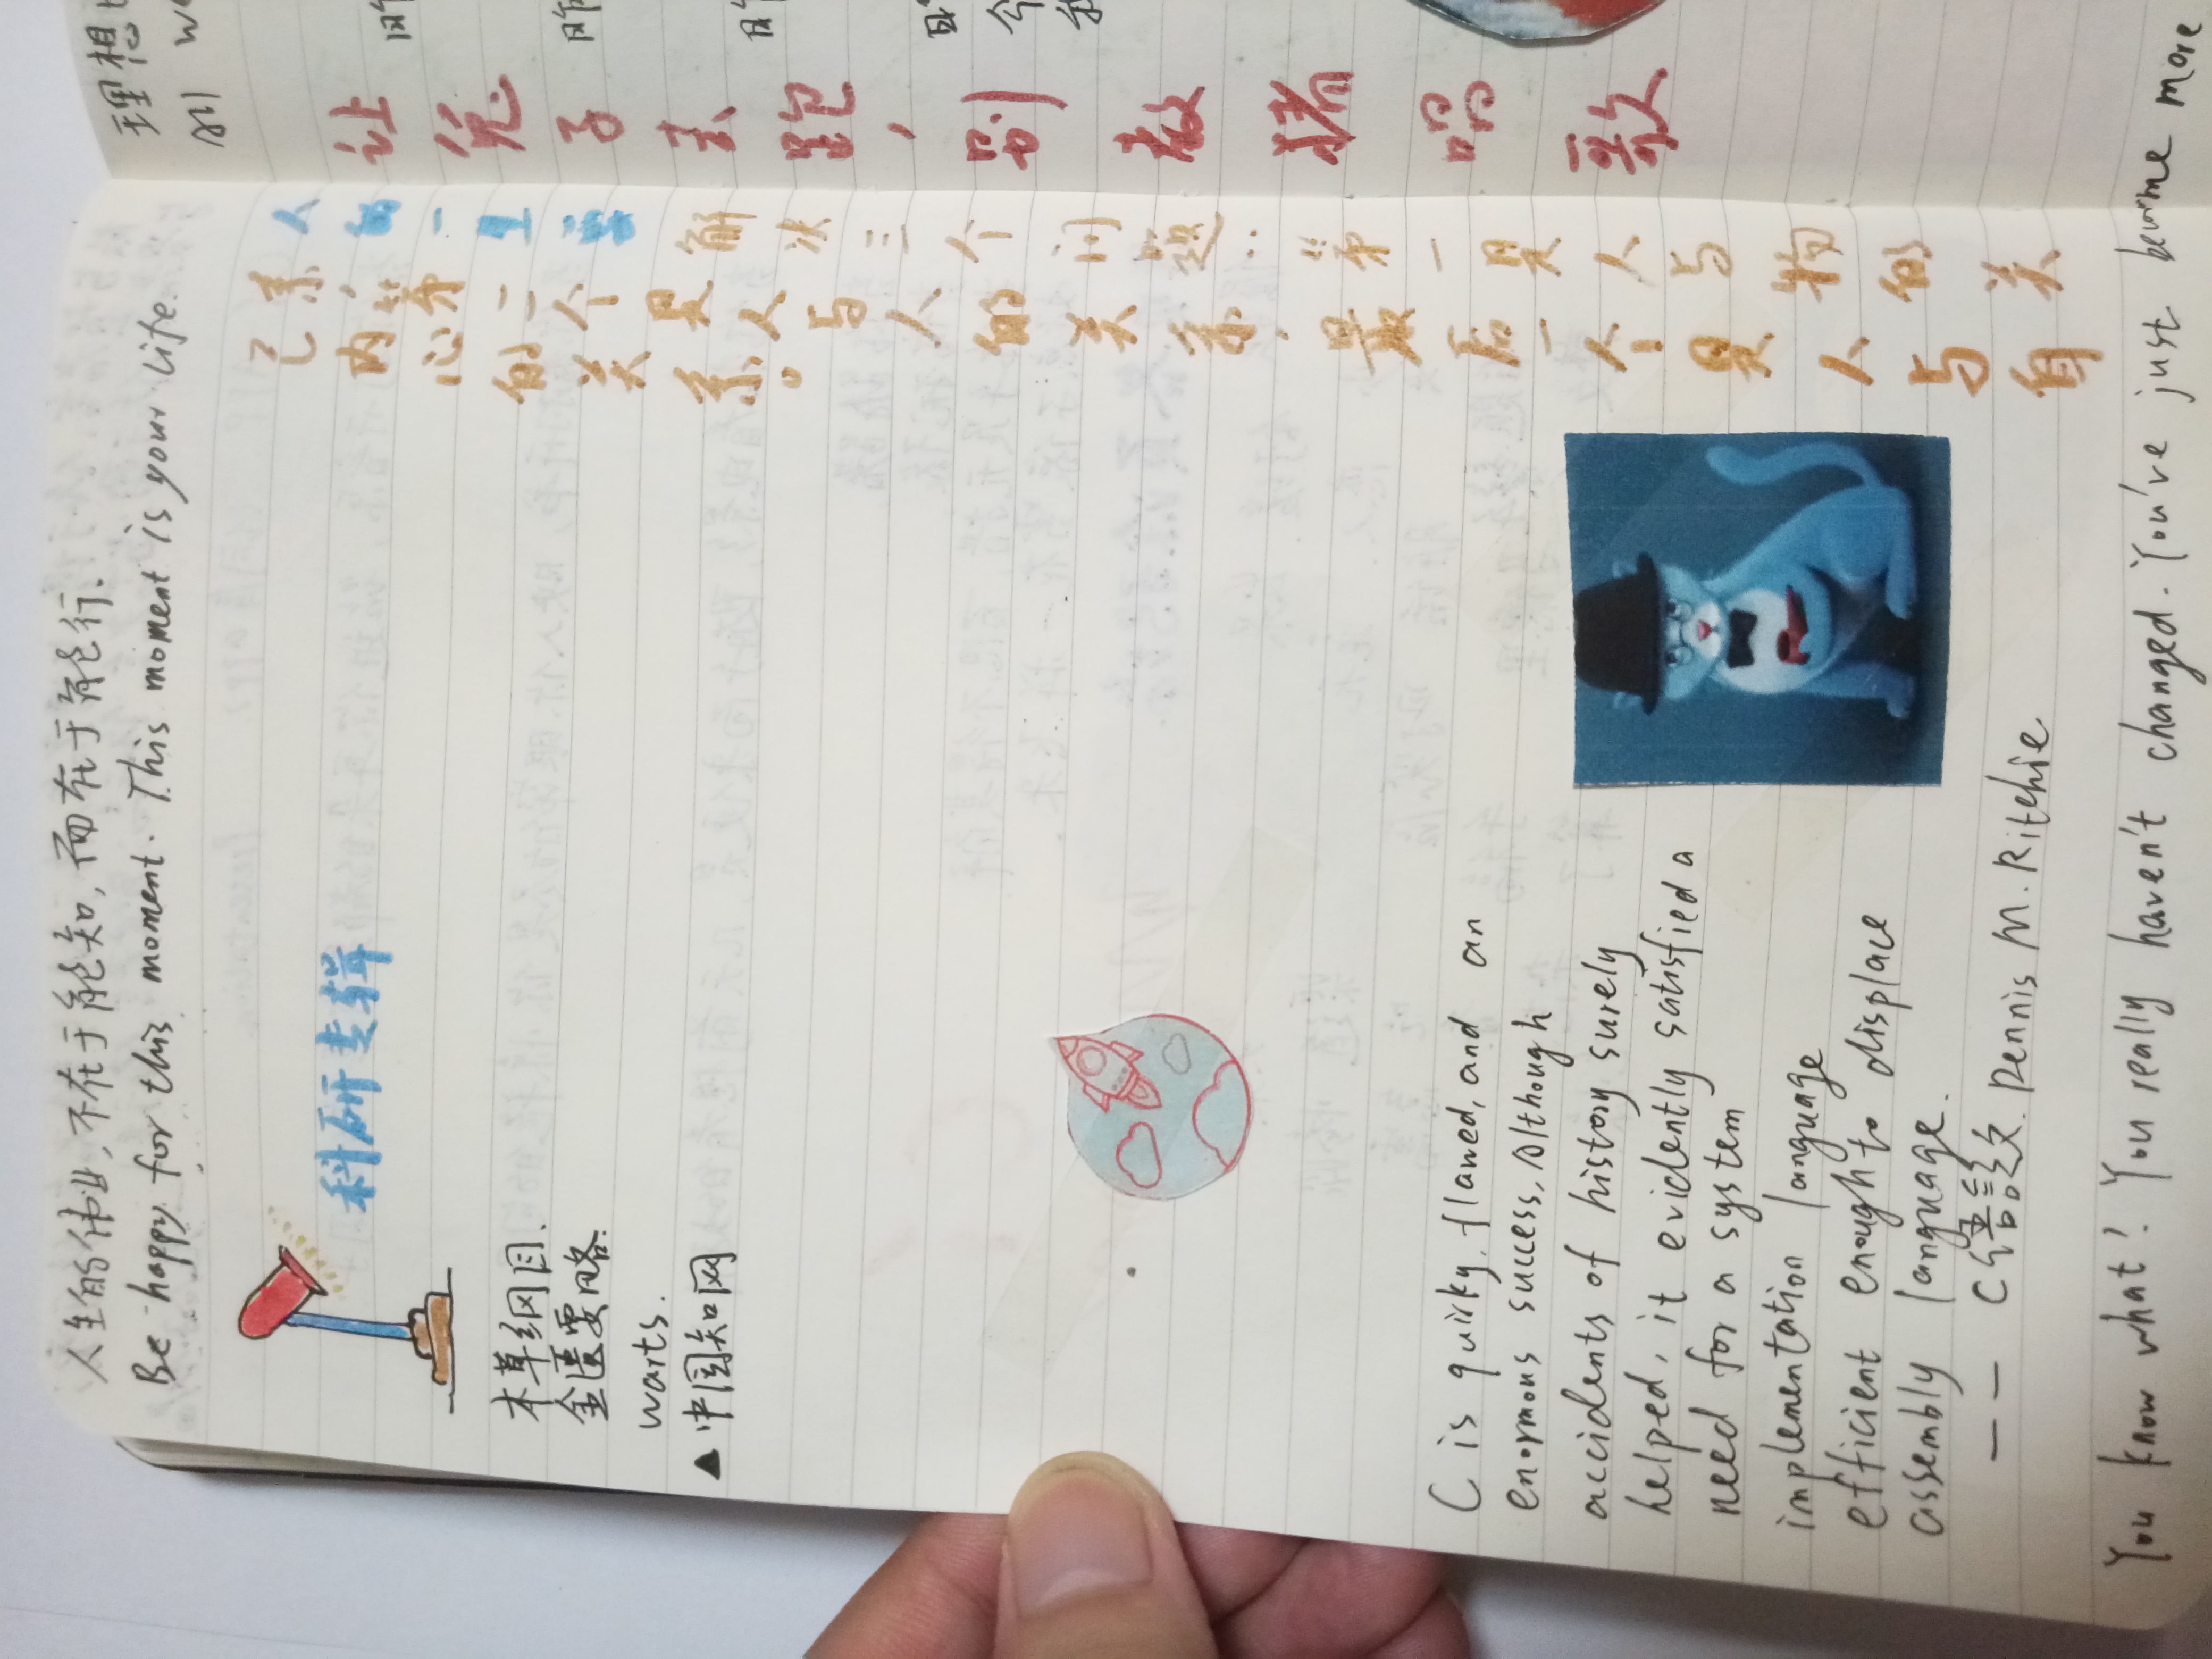 人生的伟业,不在于能知,而在于能行.
Be happy for this moment. This moment is your life.
科研专辑
本草纲目.
金匮要略.
warts.
▲中国知网
C is quirky, flawed, and an
enormous success, Although
accidents of history surely
helped, it evidently satisfied a
need for a system
implementation language
efficient enought to displace
assembly language.
—— C语言之父. Dennis M. Ritchie
You know what? You really haven't changed. You've just become more
人的一生要解决三个问题:第一是人与物的关
系,第二个是人与人的关系,最后一个是人与自
己内心的关系。
理想
让兔子去跑,别教猪唱歌